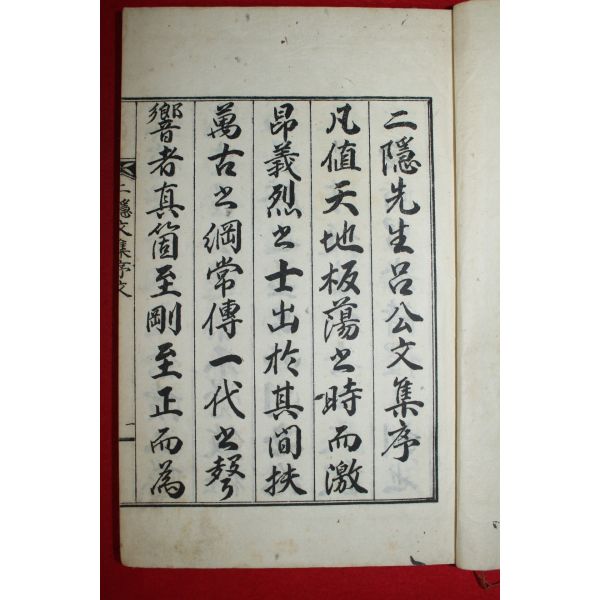 二隱先生呂公文集序
凡值天地板蕩之時而激
昂義烈之士出於其間扶
萬古之綱常傳一代之聲
響者真箇至剛至正而為
二隱文集序文
一